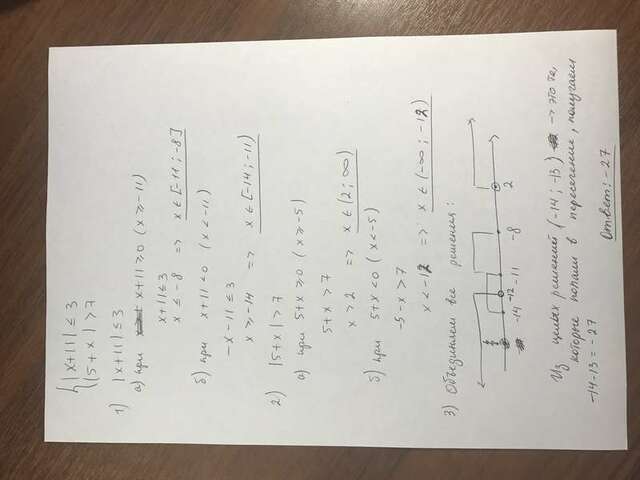 { |x+11| ≤ 3
|5+x| > 7
1) |x+11| ≤ 3
а) при x+11 ≥ 0 (x ≥ -11)
x+11 ≤ 3
x ≤ -8 => x ∈ [-11; -8]
б) при x+11 < 0 (x < -11)
-x - 11 ≤ 3
x ≥ -14 => x ∈ [-14; -11)
2) |5+x| > 7
а) при 5+x ≥ 0 (x ≥ -5)
5+x > 7
x > 2 => x ∈ (2; ∞)
б) при 5+x < 0 (x < -5)
-5-x > 7
x < -12 => x ∈ (-∞; -12)
3) Объединяем все решения:
-14 -12 -11 -8 2
Из целых решений (-14; -13) -> это те,
которые попали в пересечение, получаем
-14-13 = -27
Ответ: -27